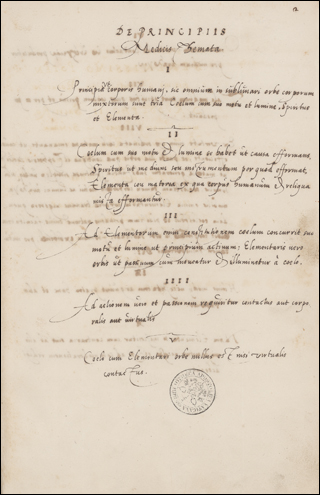 DE PRINCIPIIS
Medicis Temata
I
Principia corporis humani, sic omnium in sublunari orbe corporum
mixtorum sunt tria Coelum cum suo motu et lumine, Spiritus
et Elementa.
II
Coelum cum suo motu & lumine se habet ut causa efformans,
Spiritus ut medium seu instrumentum per quod efformat,
Elementa ceu materia ex qua corpus humanum & reliqua
efformantur.
III
Ad Elementorum omnem constitutionem caelum concurrit suo
motu et lumine ut principium activum: Elementaris vero
orbis ut passivum cum movetur & illuminetur à coelo.
IIII
Ad actionem vero et passionem requiritur contactus aut corpo
ralis aut virtualis
V
Coelo cum Elementari orbe nullus est nisi virtualis
contactus.